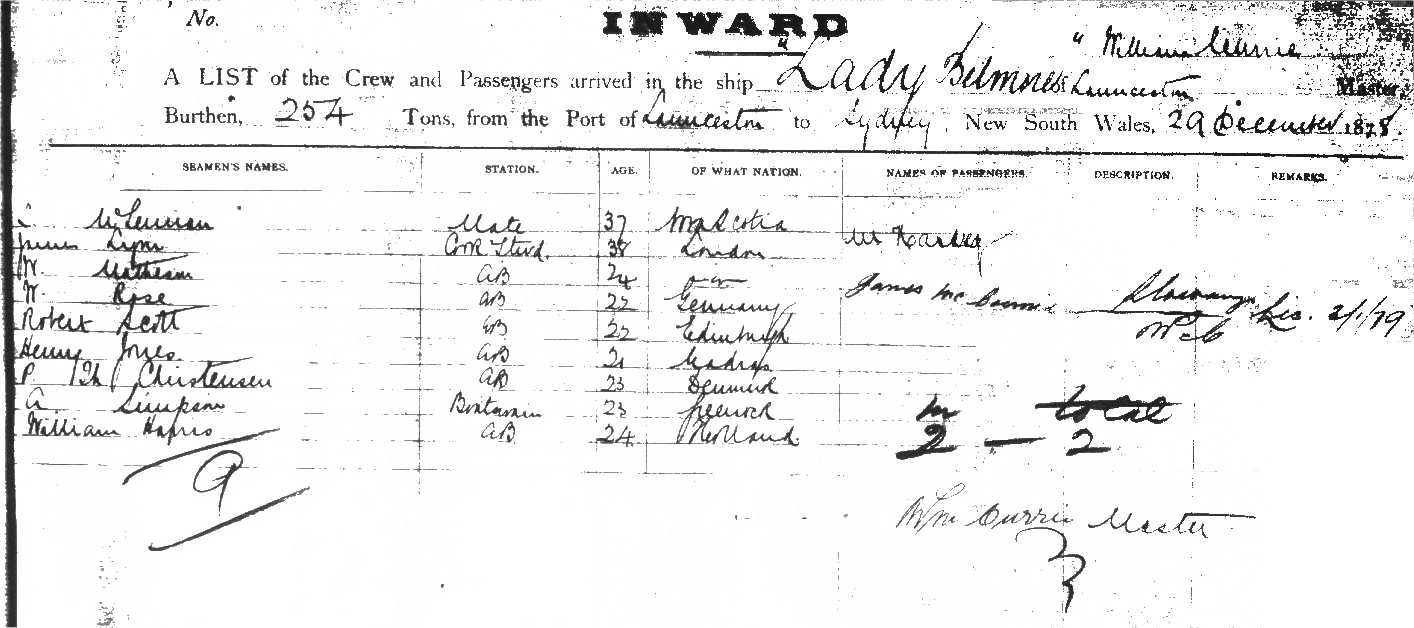 No.
INWARD
" William Currie
A LIST of the Crew and Passengers arrived in the ship "Lady Launceston Master,
Burthen, 254 Tons, from the Port of Launceston to Sydney, New South Wales, 29 December 1878.
SEAMEN'S NAMES. STATION. AGE. OF WHAT NATION. NAMES OF PASSENGERS. DESCRIPTION. REMARKS.
McLennan Mate 37 Scotia
James Cook Stewd. 38 London Mr
W. Matheson AB 24
W. Rose AB 22 Germany James Mc Lic. 2/1/79
Robert Scott AB 22 Edinburgh
Henry Jones AB 21 Madras
P Christensen AB 23 Denmark
A Simpson 23 Greenock total
William Harris AB 24 Holland 2 — 2
9
Wm Currie Master